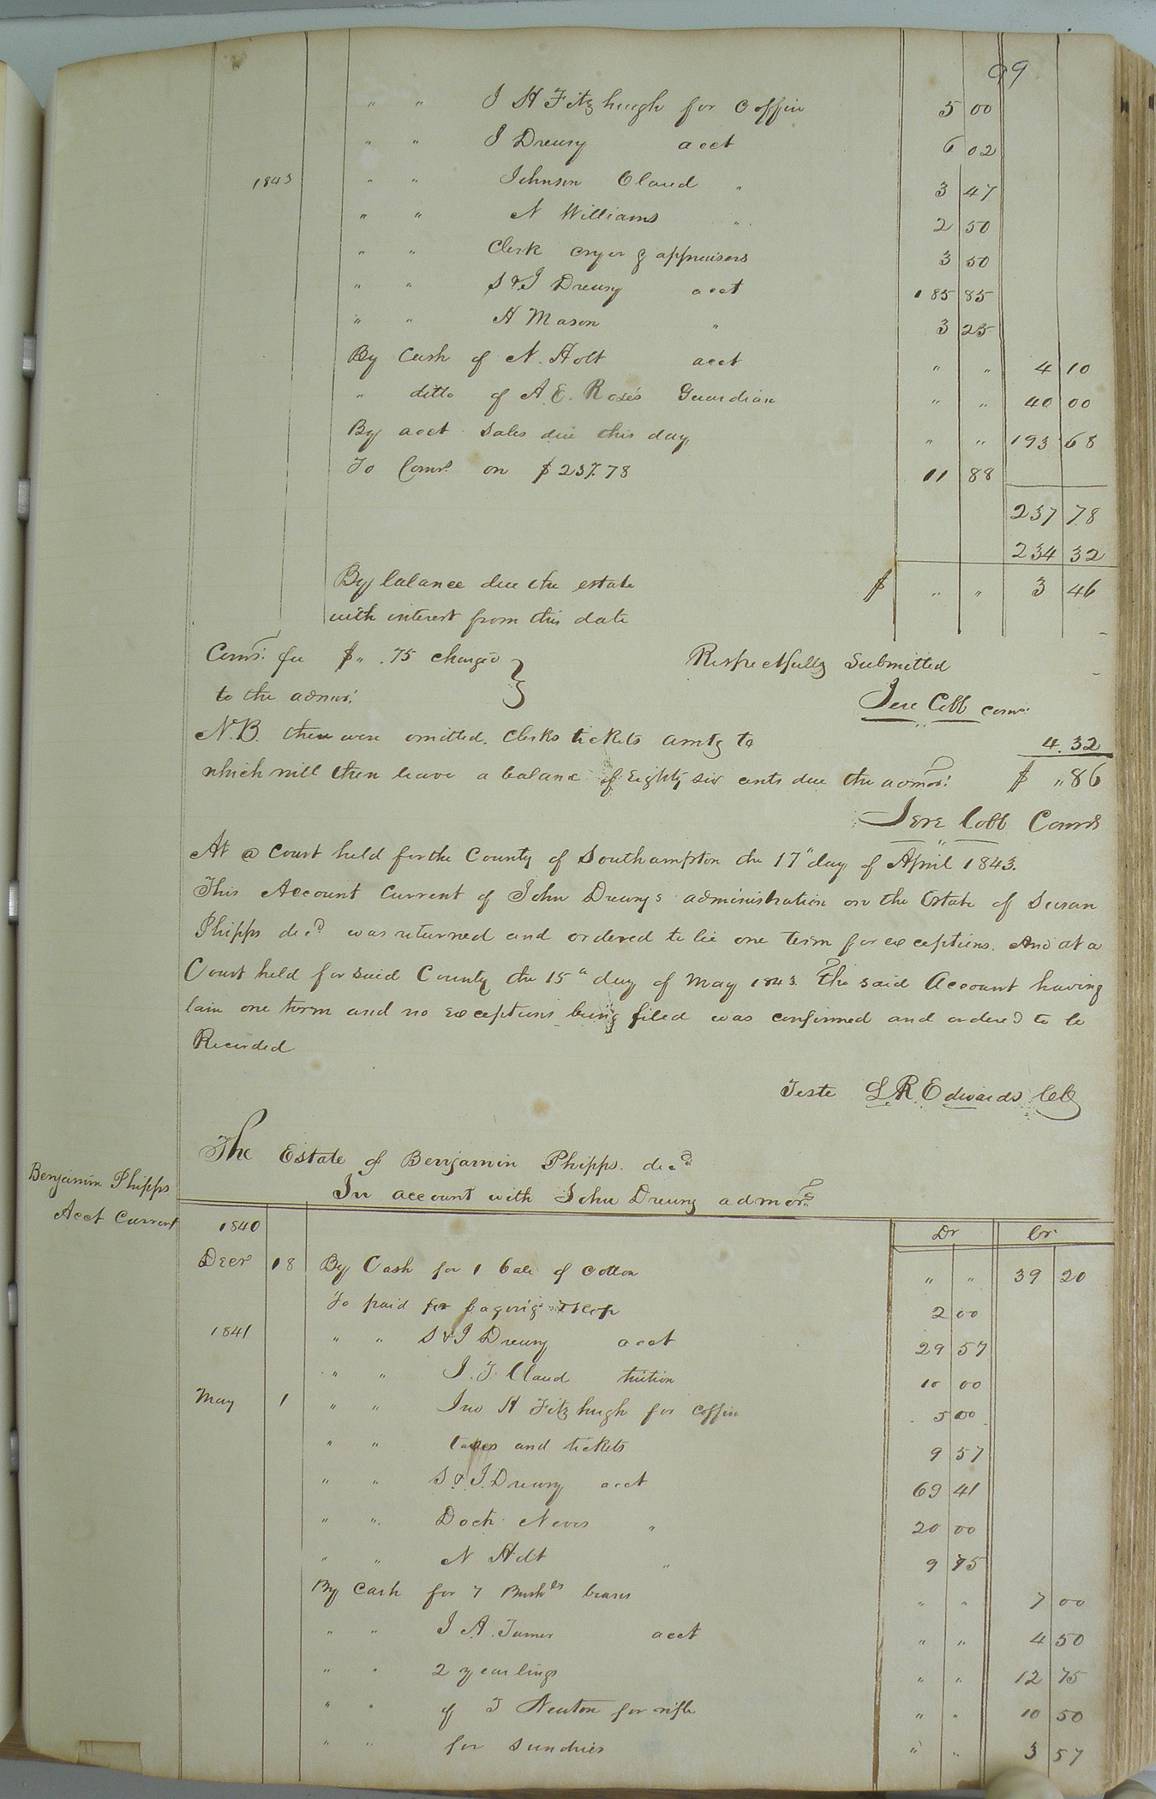 99
" " J H Fitzhugh for Coffin 5 00
" " J Drewry acct 6 02
1843 " " Johnson Claud " 3 47
" " N Williams " 2 50
" " Clerk cryer & appraisers 3 50
" " S & J Drewry acct 185 85
" " H Mason " 3 25
By Cash of N. Holt acct " " 4 10
" ditto of A. E. Rose's Guardian " " 40 00
By acct Sales due this day " " 193 68
To Comrs. on $237.78 11 88
237 78
234 32
By balance due the estate $ " " 3 46
with interest from this date
Comrs. fee $ " .75 charged }
to the admor.
Respectfully Submitted
Jere Cobb comr.
N.B. there were omitted. Clerks tickets amtg to 4.32
which will then leave a balance of Eighty six cents due the admor. $ " 86
Jere Cobb Comr
At a Court held for the County of Southampton the 17" day of April 1843.
This Account Current of John Drewry's administration on the Estate of Susan
Phipps decd was returned and ordered to lie one term for exceptions. And at a
Court held for said County the 15" day of May 1843. The said Account having
lain one term and no exceptions being filed was confirmed and ordered to be
Recorded
Teste L R Edwards Clk
The Estate of Benjamin Phipps. decd
In account with John Drewry admor.
Benjamin Phipps
Acct Current
1840 Dr Cr
Decr 18 By Cash for 1 bale of Cotton " " 39 20
To paid for 2 00
1841 " " S & J Drewry acct 29 57
" " J. T. Claud tuition 10 00
May 1 " " Jno H Fitzhugh for coffin 5 00
" " taxes and tickets 9 57
" " S & J. Drewry acct 69 41
" " Doct Nevis " 20 00
" " N Holt " 9 75
By Cash for 7 Bushls beans " " 7 00
" " J A. Turner acct " " 4 50
" " 2 yearlings " " 12 75
" " of J Newton for rifle " " 10 50
" " for Sundries " " 3 57